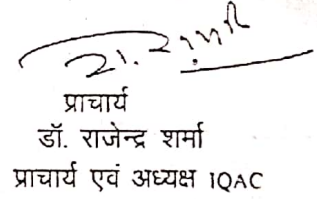 प्राचार्य
डॉ. राजेन्द्र शर्मा
प्राचार्य एवं अध्यक्ष IQAC